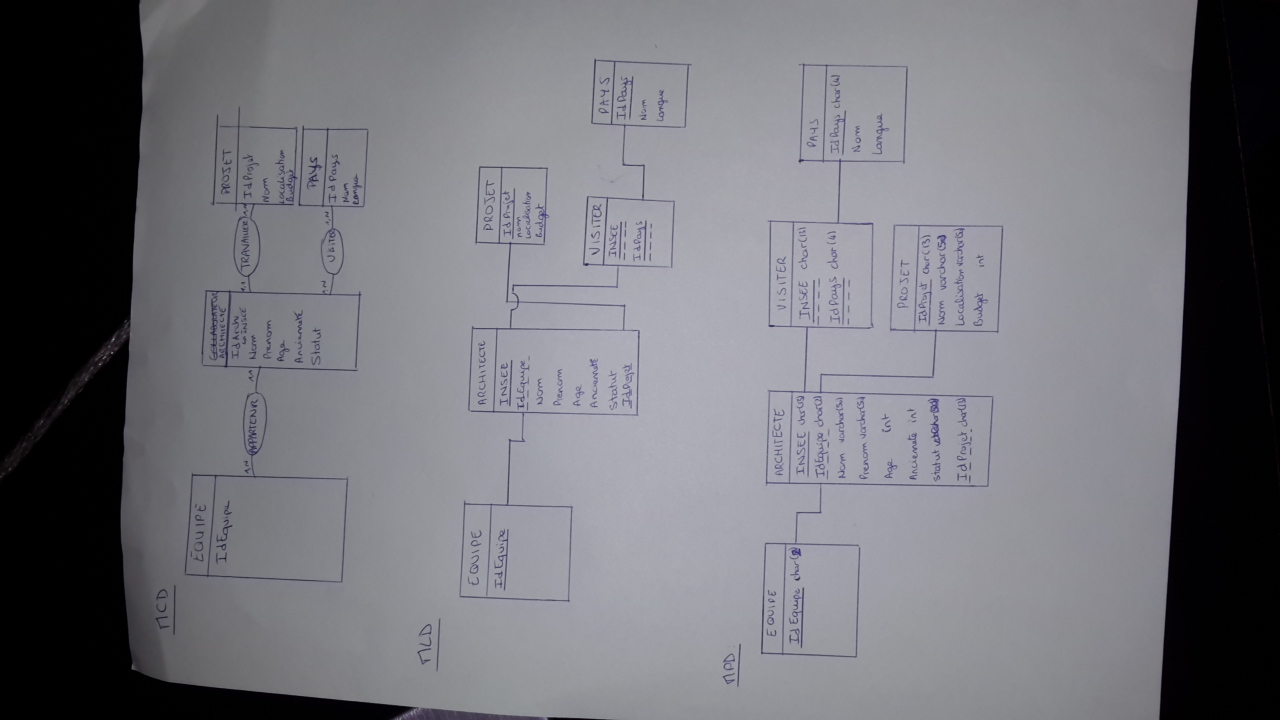 MCD
EQUIPE
IdEquipe
1,N
APPARTENIR
1,1
COLLABORATEUR
ARCHITECTE
IdArchi
↳ INSEE
Nom
Prenom
Age
Ancienneté
Statut
1,1
TRAVAILLER
1,N
PROJET
IdProjet
Nom
Localisation
Budget
1,N
VISITER
1,N
PAYS
IdPays
Nom
Langue
MLD
EQUIPE
IdEquipe
ARCHITECTE
INSEE
IdEquipe
Nom
Prenom
Age
Ancienneté
Statut
IdProjet
PROJET
IdProjet
Nom
Localisation
Budget
VISITER
INSEE
IdPays
PAYS
IdPays
Nom
Langue
MPD
EQUIPE
IdEquipe char(2)
ARCHITECTE
INSEE char(13)
IdEquipe char(2)
Nom varchar(50)
Prenom varchar(50)
Age int
Anciennete int
Statut
IdProjet char(13)
VISITER
INSEE char(13)
IdPays char(4)
PROJET
IdProjet char(13)
Nom varchar(50)
Localisation varchar(50)
Budget int
PAYS
IdPays char(4)
Nom
Langue